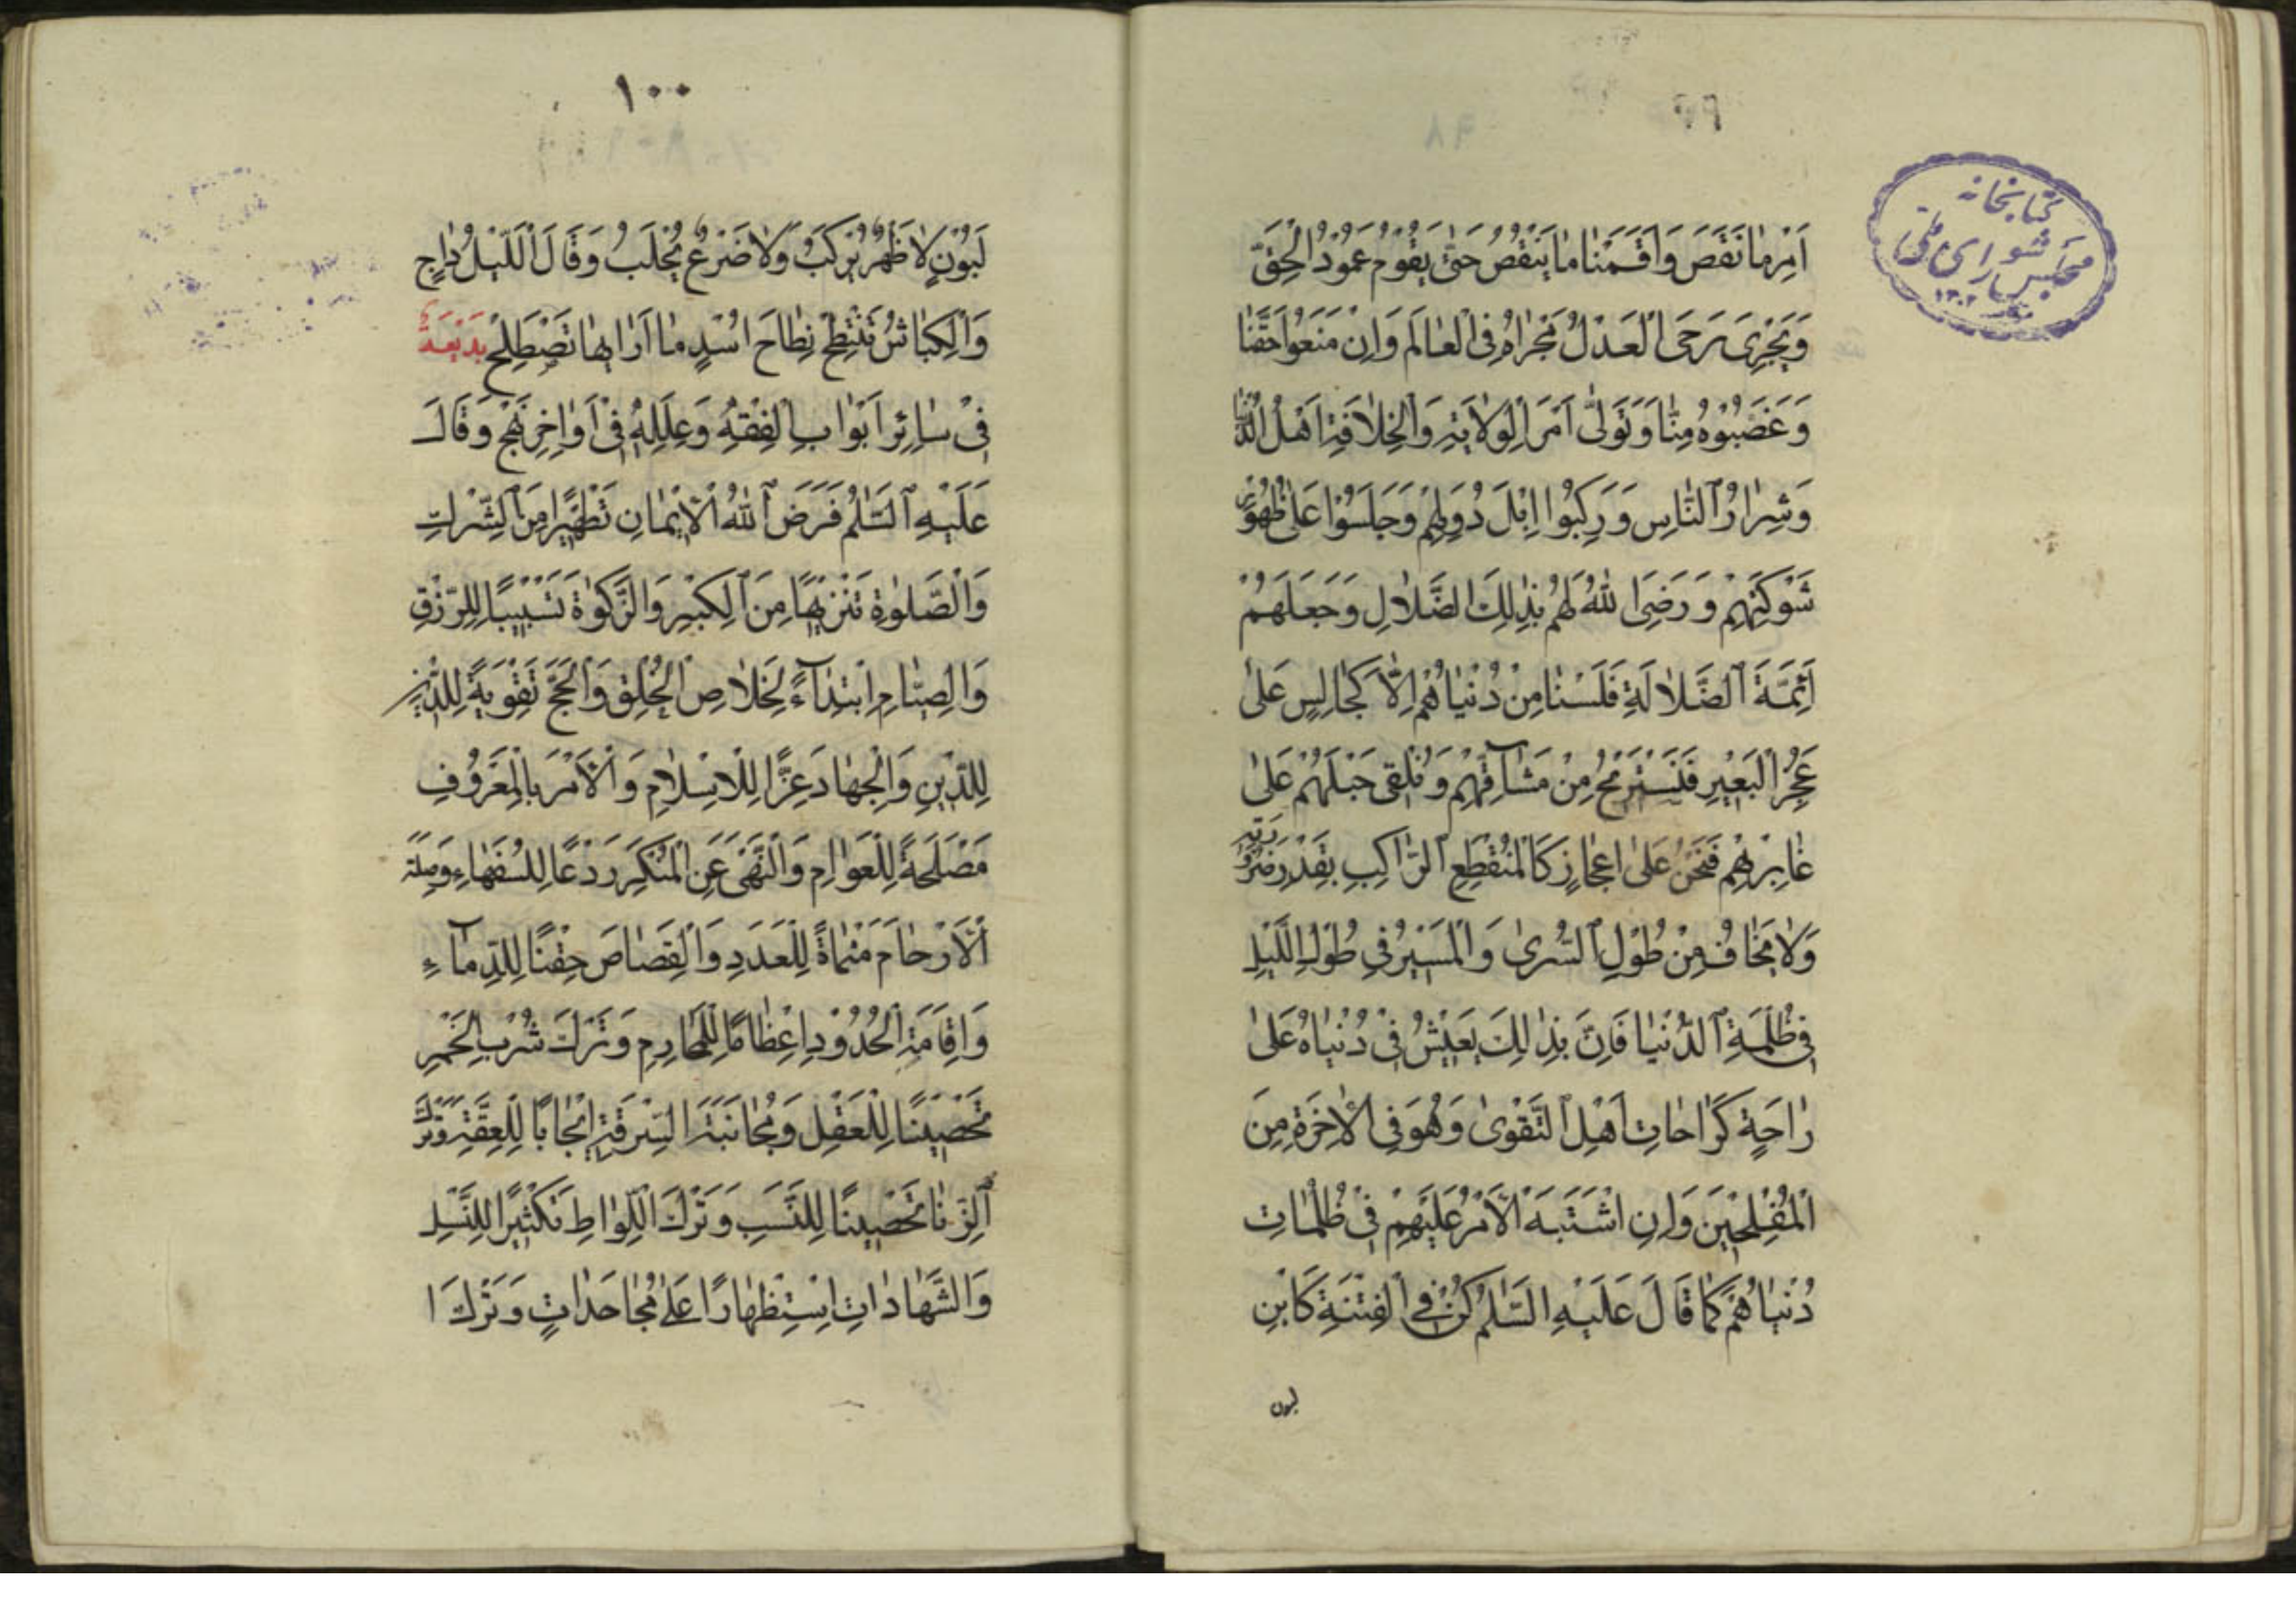 اَمْرِ مٰا نَقَصَ وَاَقَمْنٰا مٰا يَنْقُصُ حَتّٰى يَقُوْمَ عَمُوْدُ الْحَقِّ
وَيَجْرِىَ رَحَى الْعَدْلُ مَجْرٰاهُ فِى الْعٰالَمِ وَاِنْ مَنَعُوْا حَقَّنٰا
وَغَصَبُوْهُ مِنّٰا وَتَوَلّٰى اَمْرَ الْوِلٰايَةِ وَالْخِلٰافَةِ اَهْلُ الدُّنْيٰا
وَشِرٰارُ النّٰاسِ وَرَكِبُوْا اِبْلَ دُوَلِهِمْ وَجَلَسُوْا عَلٰى ظُهُوْرِ
شَوْكَتِهِمْ وَرَضِىَ اللّٰهُ لَهُمْ بِذٰلِكَ الضَّلٰالِ وَجَعَلَهُمْ
اَئِمَّةَ الضَّلٰالَةِ فَلَسْنٰا مِنْ دُنْيٰاهُمْ اِلّٰا كَجٰالِسٍ عَلٰى
عَجُزِ الْبَعِيْرِ فَنَسْتَرِيْحُ مِنْ مَشٰآقِّهِمْ وَنُلْقِى حَبْلَهُمْ عَلٰى
غٰارِبِهِمْ فَنَحْنُ عَلٰى اَعْجٰازٍ كَالْمُنْقَطِعِ الرّٰاكِبِ بِقَدْرِ
وَلٰا نَخٰافُ مِنْ طُوْلِ السُّرٰى وَالْمَسِيْرُ فِى طُوْلِ اللَّيْلِ
فِى ظُلْمَةِ الدُّنْيٰا فَاِنَّ بِذٰلِكَ يَعِيْشُ فِىْ دُنْيٰاهُ عَلٰى
رٰاحَةٍ كَرٰاحٰاتِ اَهْلِ التَّقْوٰى وَهُوَ فِى الْاٰخِرَةِ مِنَ
الْمُفْلِحِيْنَ وَاِنِ اشْتَبَهَ الْاَمْرُ عَلَيْهِمْ فِىْ ظُلُمٰاتِ
دُنْيٰاهُمْ كَمٰا قٰالَ عَلَيْهِ السَّلٰمُ كُنْ فِى الْفِتْنَةِ كَابْنِ
لبون
كتابخانه
مجلس شوراى ملّى
١٣٠٢
١٠٠
لَبُوْنٍ لٰا ظَهْرٌ يُرْكَبُ وَلٰا ضَرْعٌ يُحْلَبُ وَقٰالَ اَللَّيْلُ دٰاجٍ
وَالْكِبٰاشُ تَنْتَطِحُ نِطٰاحَ اُسْدٍ مٰا اَرٰاهٰا تَصْطَلِحُ
فِىْ سٰائِرِ اَبْوٰابِ الْفِقْهِ وَعِلَلِهِ فِىْ اَوٰاخِرِ نَهْجٍ وَقٰالَ
عَلَيْهِ السَّلٰمُ فَرَضَ اللّٰهُ الْاِيْمٰانِ تَطْهِيْرًا مِنَ الشِّرْكِ
وَالصَّلٰوةِ تَنْزِيْهًا مِنَ الْكِبْرِ وَالزَّكٰوةَ تَسْبِيْبًا لِلرِّزْقِ
وَالصِّيٰامِ ابْتِلٰآءً لِخَلٰاصِ الْخَلْقِ وَالْحَجَّ تَقْوِيَةً لِلدِّيْنِ
لِلدِّيْنِ وَالْجِهٰادَ عِزًّا لِلْاِسْلٰامِ وَالْاَمْرَ بِالْمَعْرُوْفِ
مَصْلَحَةً لِلْعَوٰامِ وَالنَّهْىَ عَنِ الْمُنْكَرِ رَدْعًا لِلسُّفَهٰاءِ وَصِلَةَ
الْاَرْحٰامِ مَنْمٰاةً لِلْعَدَدِ وَالْقِصٰاصَ حِقْنًا لِلدِّمٰآءِ
وَاِقٰامَةَ الْحُدُوْدِ اِعْظٰامًا لِلْمَحٰارِمِ وَتَرْكَ شُرْبِ الْخَمْرِ
تَحْصِيْنًا لِلْعَقْلِ وَمُجٰانَبَةَ السِّرْقَةِ اِيْجٰابًا لِلْعِفَّةِ وَتَرْكَ
الزِّنٰا تَحْصِيْنًا لِلنَّسَبِ وَتَرْكَ اللِّوٰاطِ تَكْثِيْرًا لِلنَّسْلِ
وَالشَّهٰادٰاتِ اسْتِظْهٰارًا عَلٰى مُجٰاحَدٰاتٍ وَتَرْكَ ا